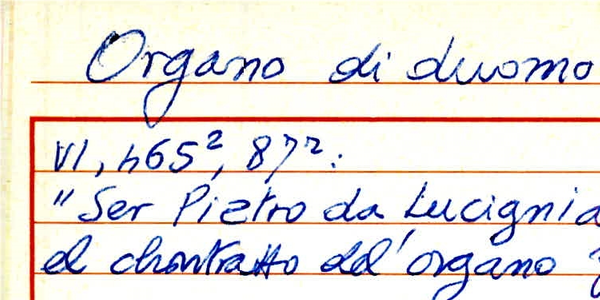 Organo di duomo
VI, 465², 87r:
"Ser Pietro da Lucignia
el chontratto del'organo